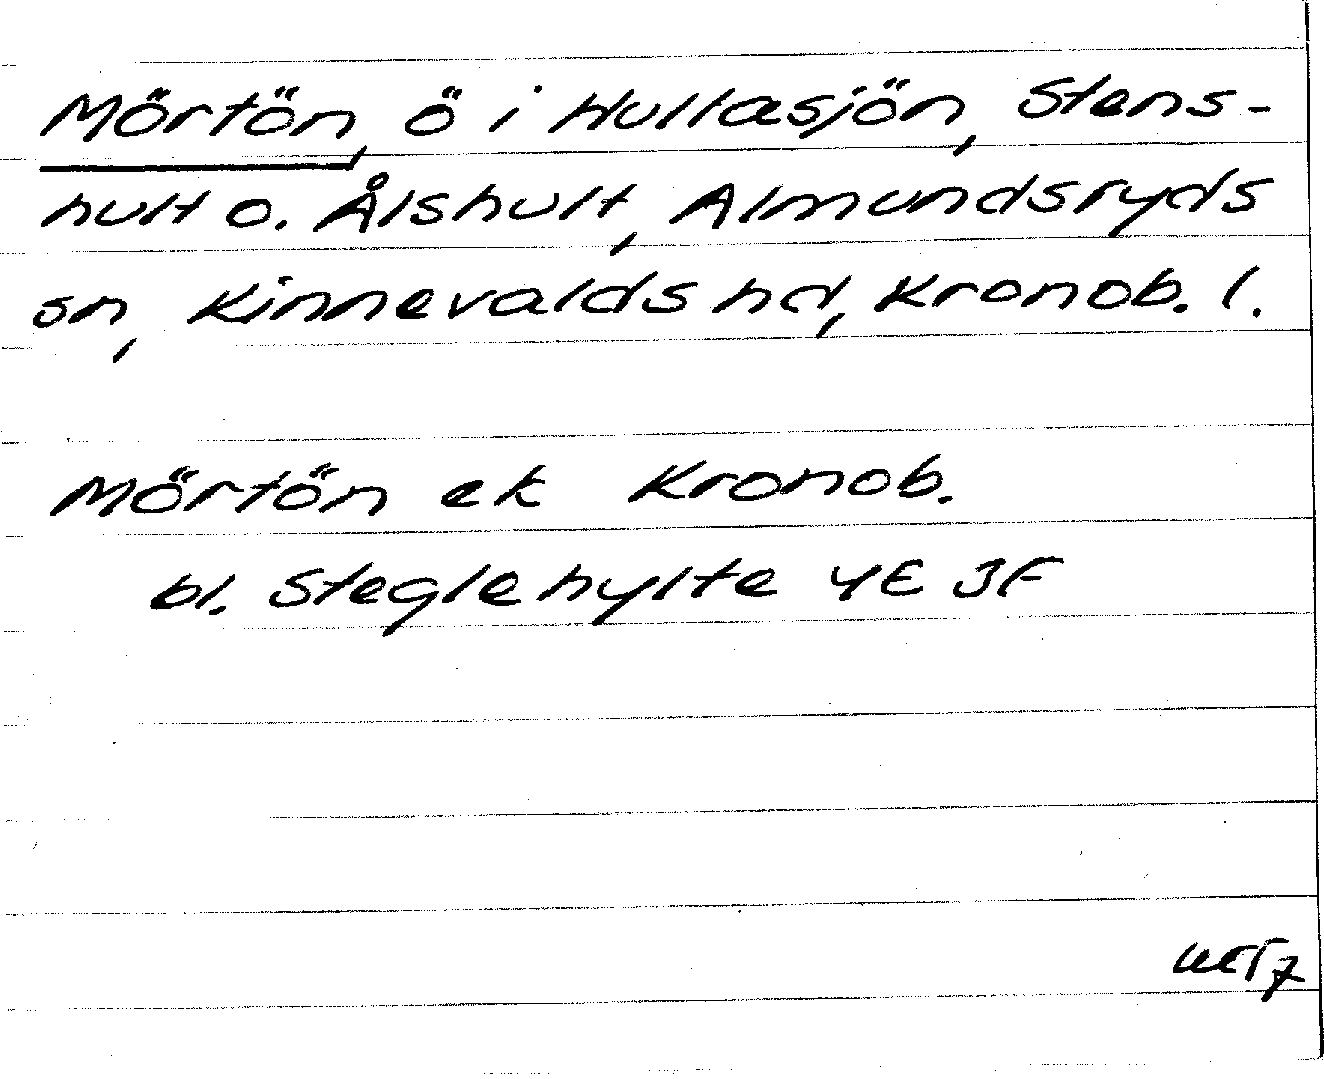 Mörtön, ö i Hullasjön, Stens-
hult o. Ålshult, Almundsryds
sn, Kinnevalds hd, Kronob. l.
Mörtön ek Kronob.
bl. Steglehylte 4E 3F